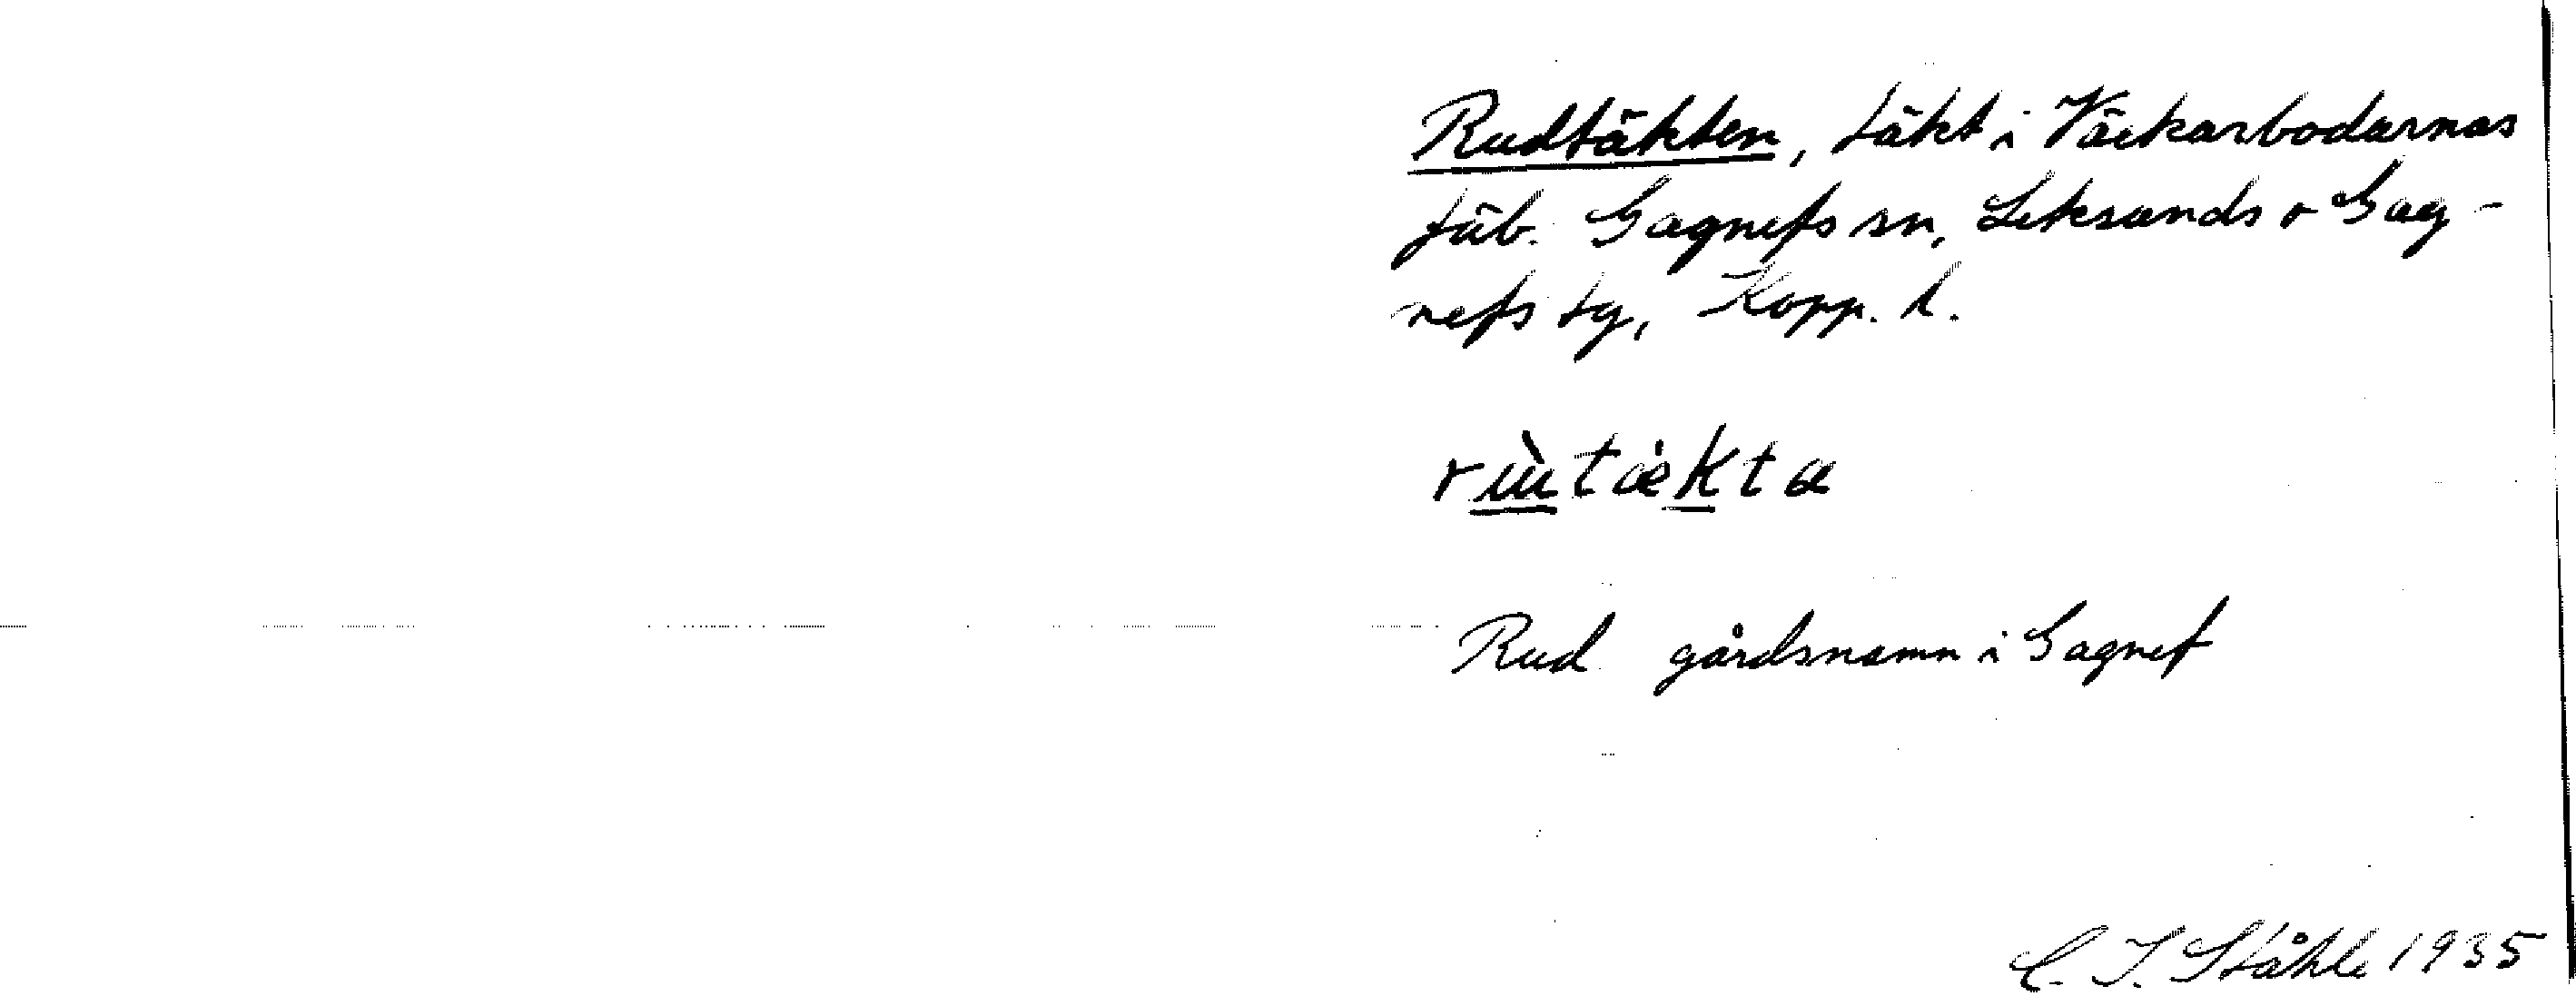 Rudtäkten, täkt i Väckarbodarnas
fäb. Gagnefs sn, Leksands o Gag-
nefs tg, Kopp. l.
Rud gårdsnamn i Gagnef
C. I. Ståhle 1935